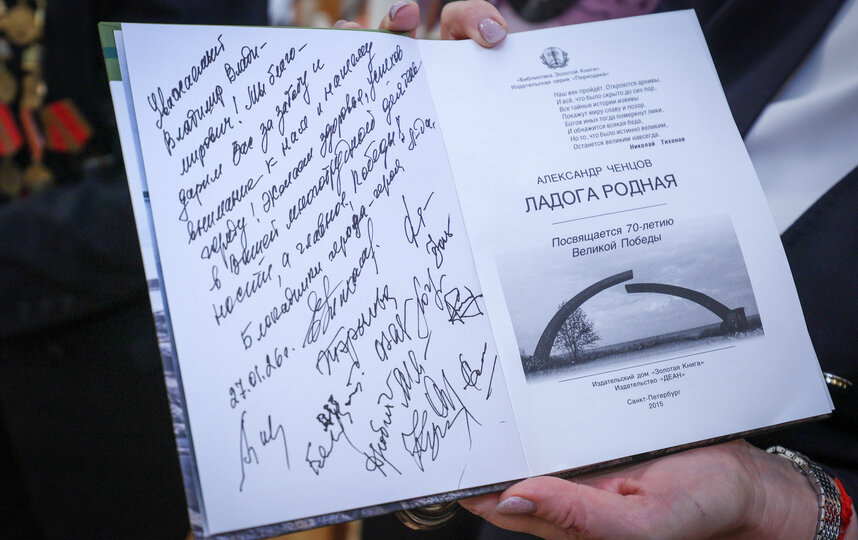 Уважаемый
Владимир Влади-
мирович! Мы благо-
дарим Вас за заботу и
внимание к нам и нашему
городу! Желаем здоровья, успехов
в Вашей многотрудной деятель-
ности, а главное, Победы!
Блокадники города-героя
27.01.26г.
«Библиотека Золотой Книги»
Издательская серия «Периодика»
Наш век пройдёт. Откроются архивы,
И всё, что было скрыто до сих пор,
Все тайные истории извивы
Покажут миру славу и позор.
Богов иных тогда померкнут лики,
И обнажится всякая беда.
Но то, что было истинно великим,
Останется великим навсегда.
Николай Тихонов
АЛЕКСАНДР ЧЕНЦОВ
ЛАДОГА РОДНАЯ
Посвящается 70-летию
Великой Победы
Издательский дом «Золотая Книга»
Издательство «ДЕАН»
Санкт-Петербург
2015